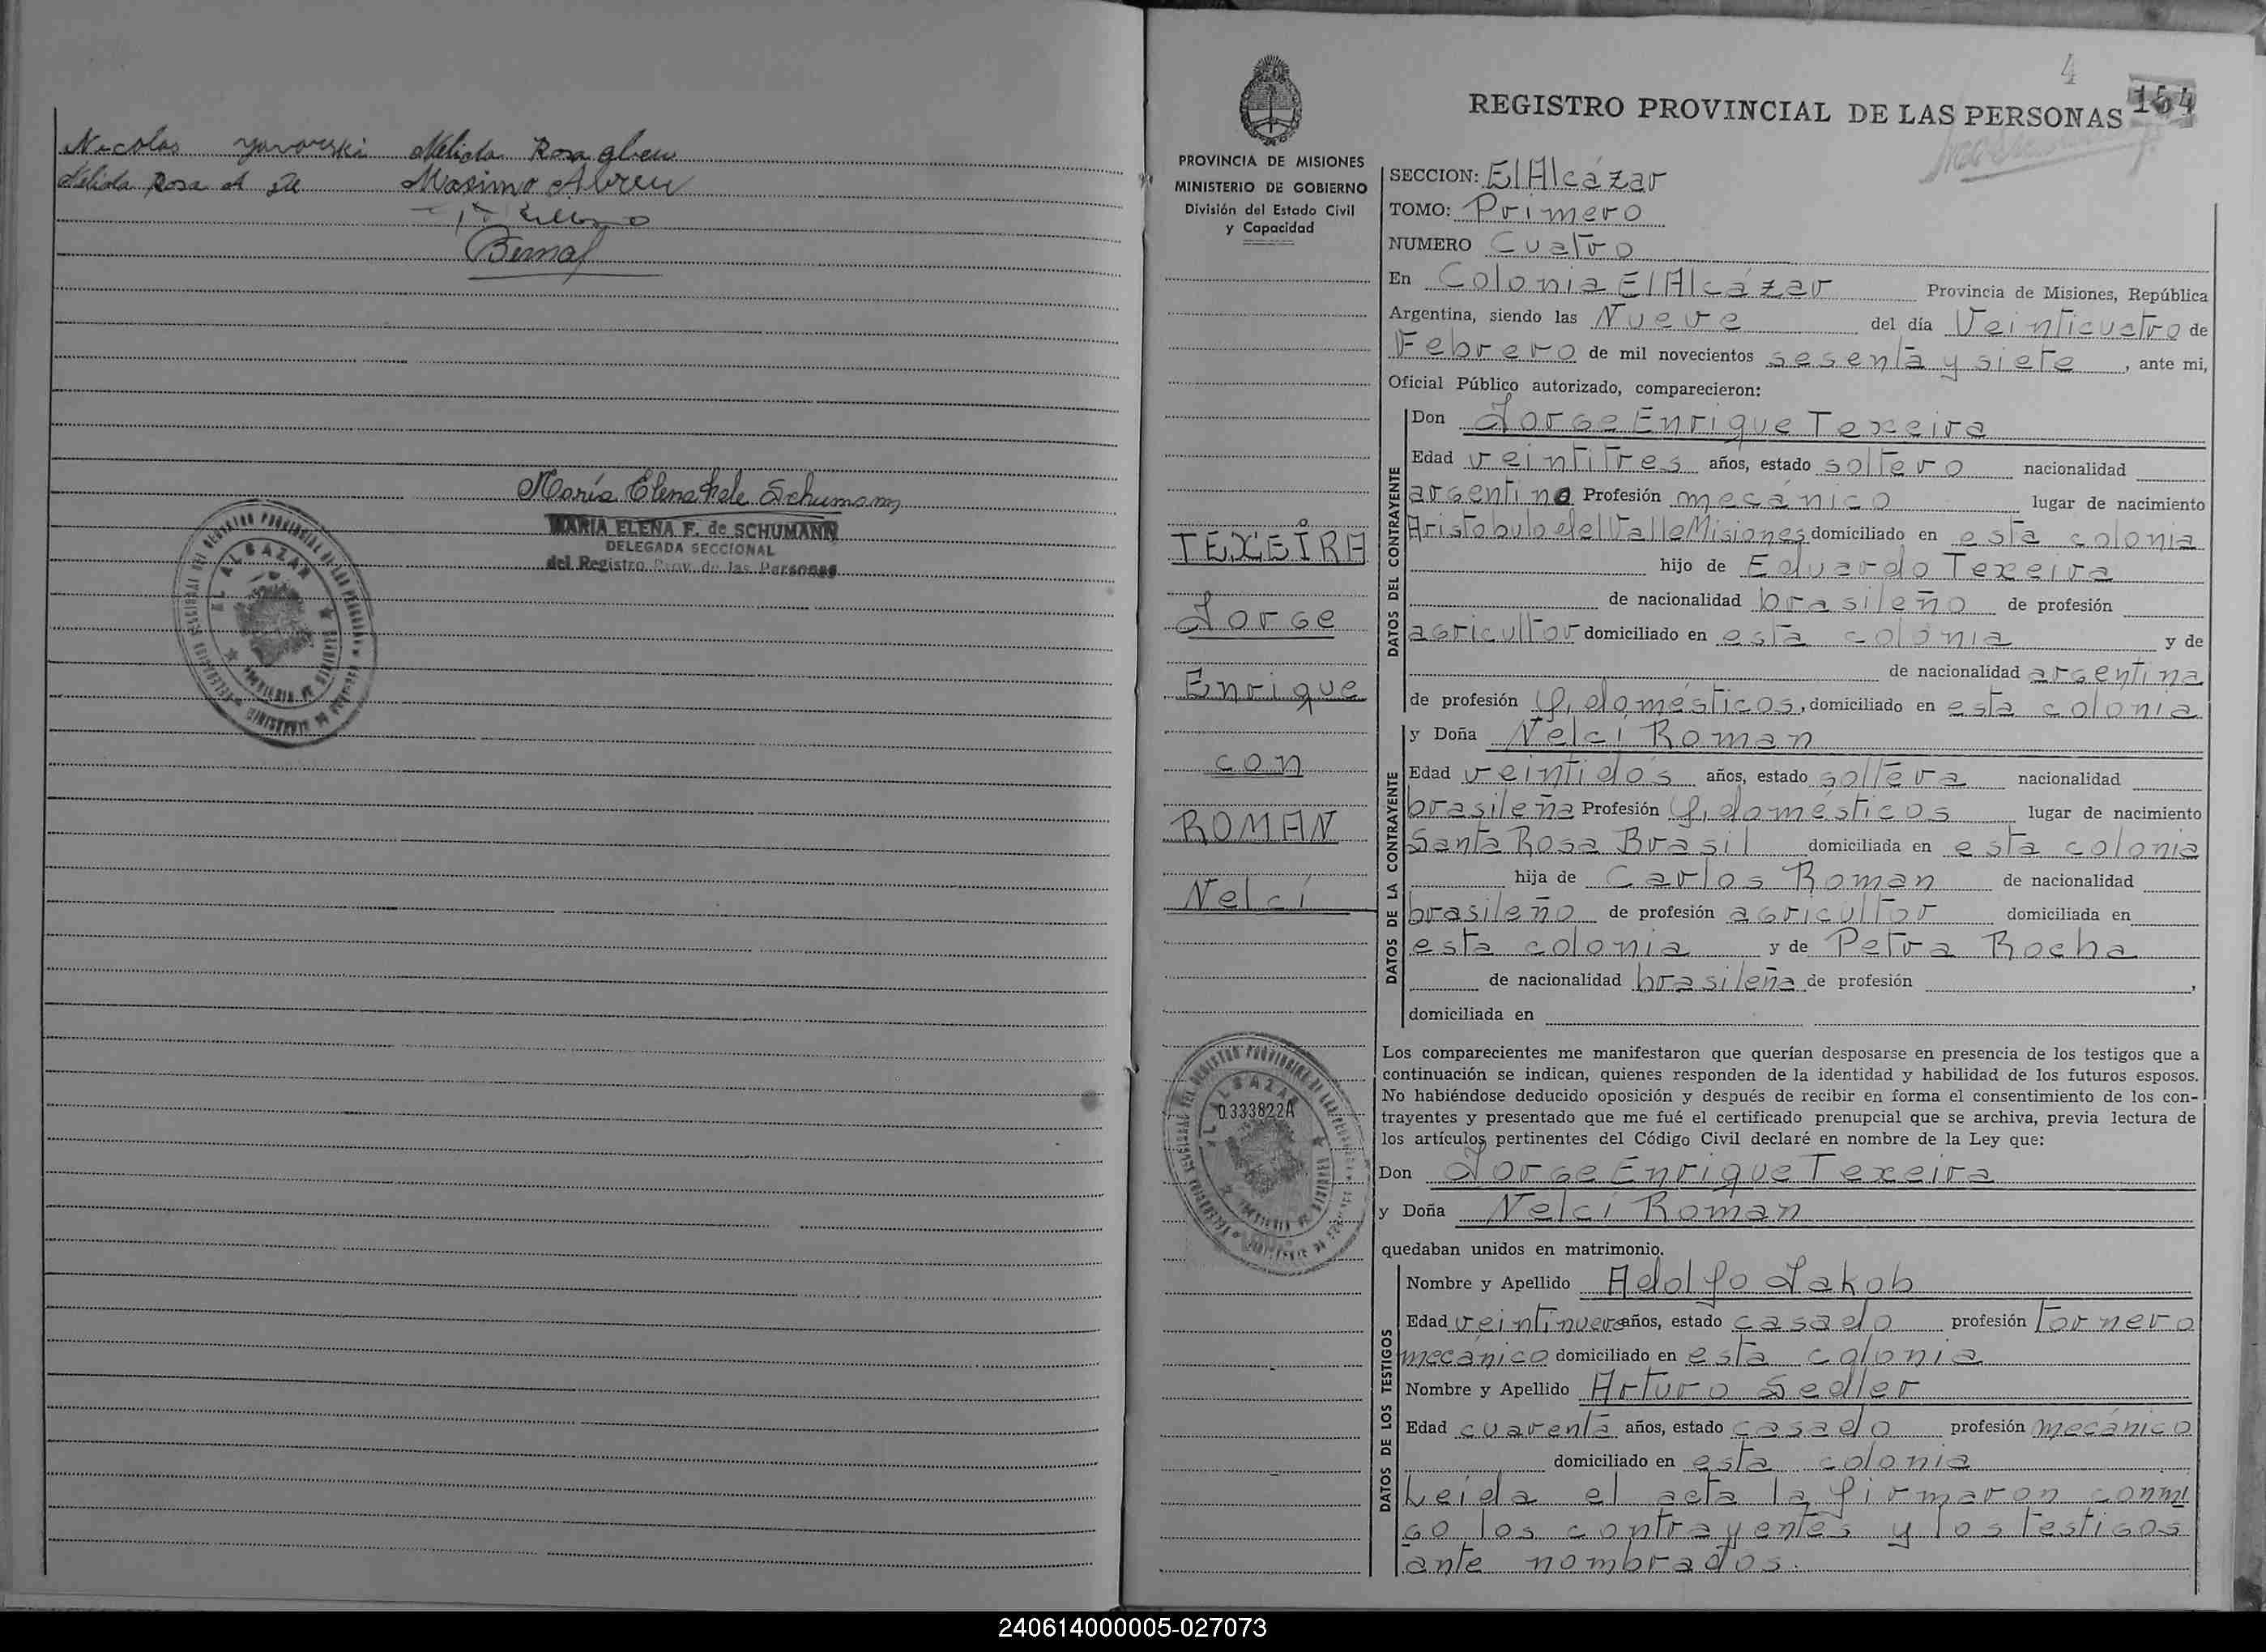 Nicolas Yavorski Nelida Rosa Abreu
Nelida Rosa A de Maximo Abreu
Bernal
Maria Elena Fiele Schumann
MARIA ELENA F. de SCHUMANN
DELEGADA SECCIONAL
del Registro Prov. de las Personas
EL ALCAZAR
4
REGISTRO PROVINCIAL DE LAS PERSONAS 154
PROVINCIA DE MISIONES
MINISTERIO DE GOBIERNO
División del Estado Civil
y Capacidad
TEXEIRA
Jorge
Enrique
con
ROMAN
Nelci
0.333822A
SECCION: El Alcázar
TOMO: Primero
NUMERO Cuatro
En Colonia El Alcázar Provincia de Misiones, República
Argentina, siendo las Nueve del día Veinticuatro de
Febrero de mil novecientos sesenta y siete, ante mi,
Oficial Público autorizado, comparecieron:
DATOS DEL CONTRAYENTE
Don Jorge Enrique Texeira
Edad veintitres años, estado soltero nacionalidad
argentino Profesión mecánico lugar de nacimiento
Aristobulo del Valle Misiones domiciliado en esta colonia
hijo de Eduardo Texeira
de nacionalidad brasileño de profesión
agricultor domiciliado en esta colonia y de
de nacionalidad argentina
de profesión q. domésticos, domiciliado en esta colonia
DATOS DE LA CONTRAYENTE
y Doña Nelci Roman
Edad veintidos años, estado soltera nacionalidad
brasileña Profesión q. domésticos lugar de nacimiento
Santa Rosa Brasil domiciliada en esta colonia
hija de Carlos Roman de nacionalidad
brasileño de profesión agricultor domiciliada en
esta colonia y de Petra Rocha
de nacionalidad brasileña de profesión ,
domiciliada en
Los comparecientes me manifestaron que querían desposarse en presencia de los testigos que a
continuación se indican, quienes responden de la identidad y habilidad de los futuros esposos.
No habiéndose deducido oposición y después de recibir en forma el consentimiento de los con-
trayentes y presentado que me fué el certificado prenupcial que se archiva, previa lectura de
los artículos pertinentes del Código Civil declaré en nombre de la Ley que:
Don Jorge Enrique Texeira
y Doña Nelci Roman
quedaban unidos en matrimonio.
DATOS DE LOS TESTIGOS
Nombre y Apellido Adolfo Jakob
Edad veintinueve años, estado casado profesión tornero
mecánico domiciliado en esta colonia
Nombre y Apellido Arturo Sedler
Edad cuarenta años, estado casado profesión mecánico
domiciliado en esta colonia
Leída el acta la firmaron conmi
go los contrayentes y los testigos
ante nombrados.
240614000005-027073